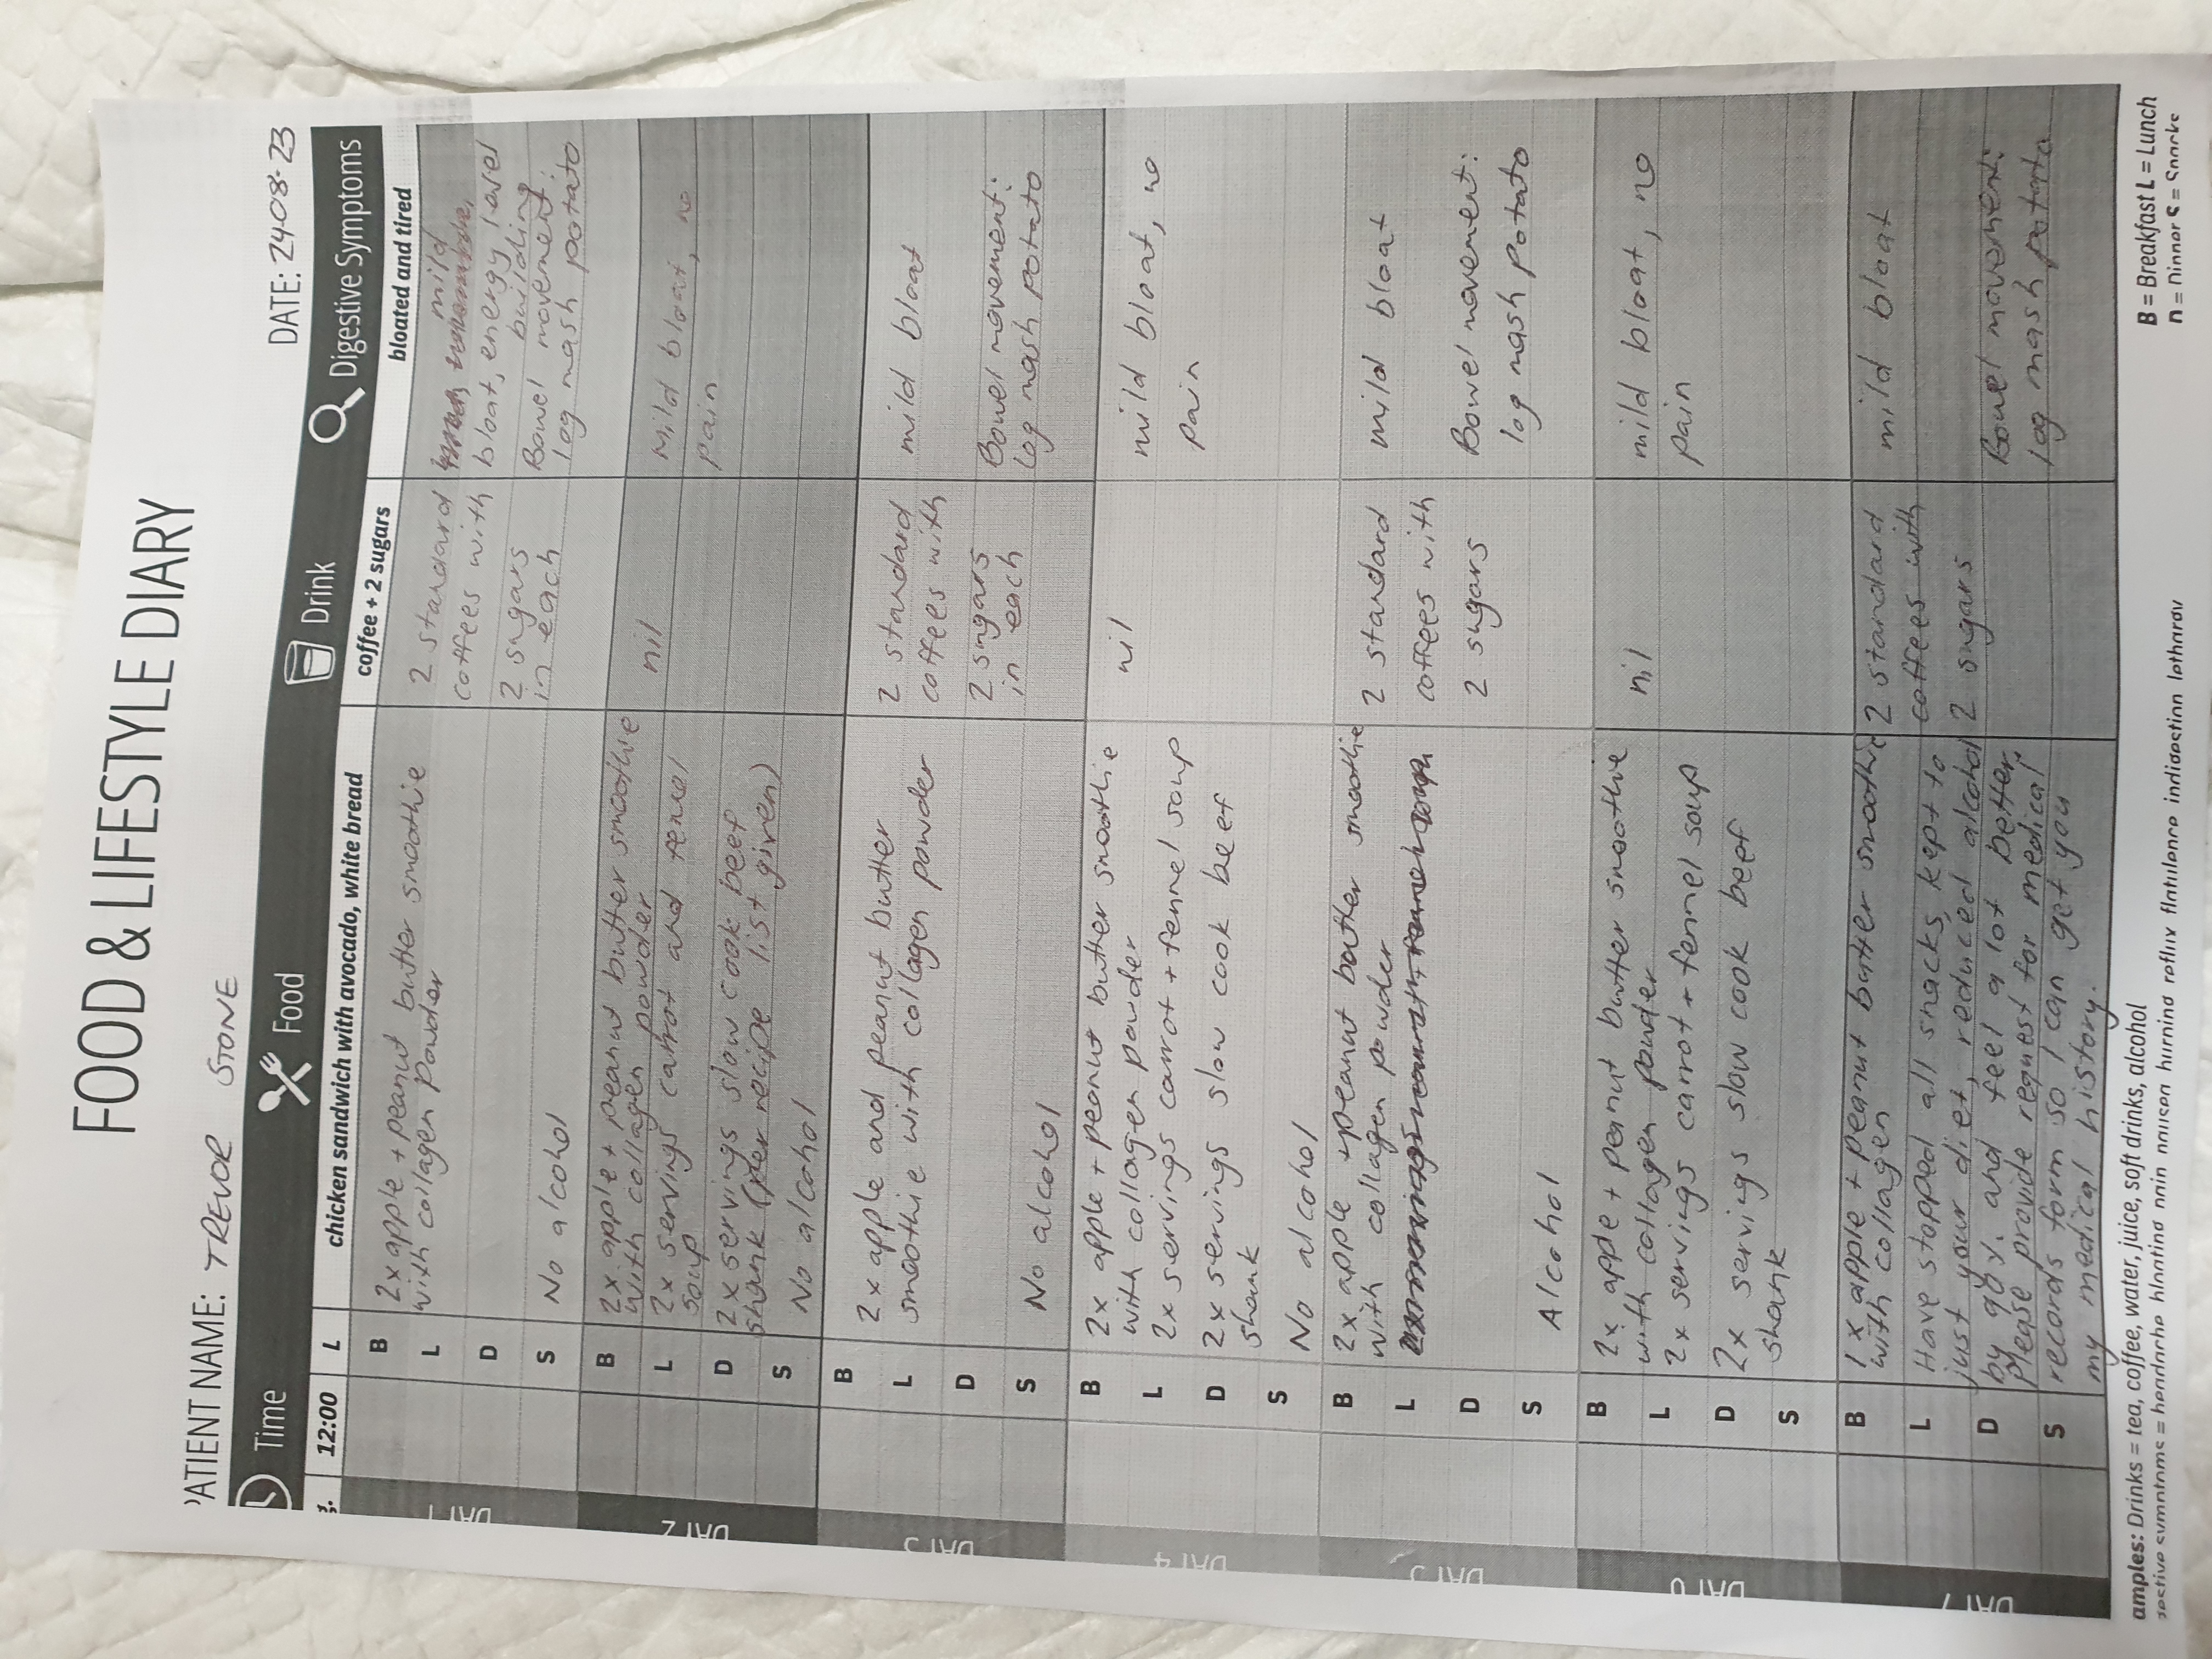 FOOD & LIFESTYLE DIARY
PATIENT NAME: TREVOR STONE
DATE: 24.08.23
Time
Food
Drink
Digestive Symptoms
12:00
L
chicken sandwich with avocado, white bread
coffee + 2 sugars
bloated and tired
DAY 1
B
L
D
S
2x apple + peanut butter smoothie
with collagen powder
No alcohol
2 standard
coffees with
2 sugars
in each
mild
bloat, energy level
building
Bowel movement:
log mash potato
DAY 2
B
L
D
S
2x apple + peanut butter smoothie
with collagen powder
2x servings carrot and fennel
soup
2x servings slow cook beef
shank (per recipe list given)
No alcohol
nil
Mild bloat, no
pain
DAY 3
B
L
D
S
2x apple and peanut butter
smoothie with collagen powder
No alcohol
2 standard
coffees with
2 sugars
in each
mild bloat
Bowel movement:
log mash potato
DAY 4
B
L
D
S
2x apple + peanut butter smoothie
with collagen powder
2x servings carrot + fennel soup
2x servings slow cook beef
shank
No alcohol
nil
mild bloat, no
pain
DAY 5
B
L
D
S
2x apple + peanut butter smoothie
with collagen powder
Alcohol
2 standard
coffees with
2 sugars
mild bloat
Bowel movement:
log mash potato
DAY 6
B
L
D
S
2x apple + penut butter smoothie
with collagen powder
2x servings carrot + fennel soup
2x servings slow cook beef
shank
nil
mild bloat, no
pain
DAY 7
B
L
D
S
1x apple + peanut butter smoothie
with collagen
Have stopped all snacks, kept to
just your diet, reduced alcohol
by 90%. and feel a lot better,
please provide request for medical
records form so I can get you
my medical history.
2 standard
coffees with
2 sugars
mild bloat
Bowel movement:
log mash potato
amples: Drinks = tea, coffee, water, juice, soft drinks, alcohol
gestive symptoms = headache bloating pain nausea burning reflux flatulence indigestion lethargy
B = Breakfast L = Lunch
D = Dinner S = Snacks